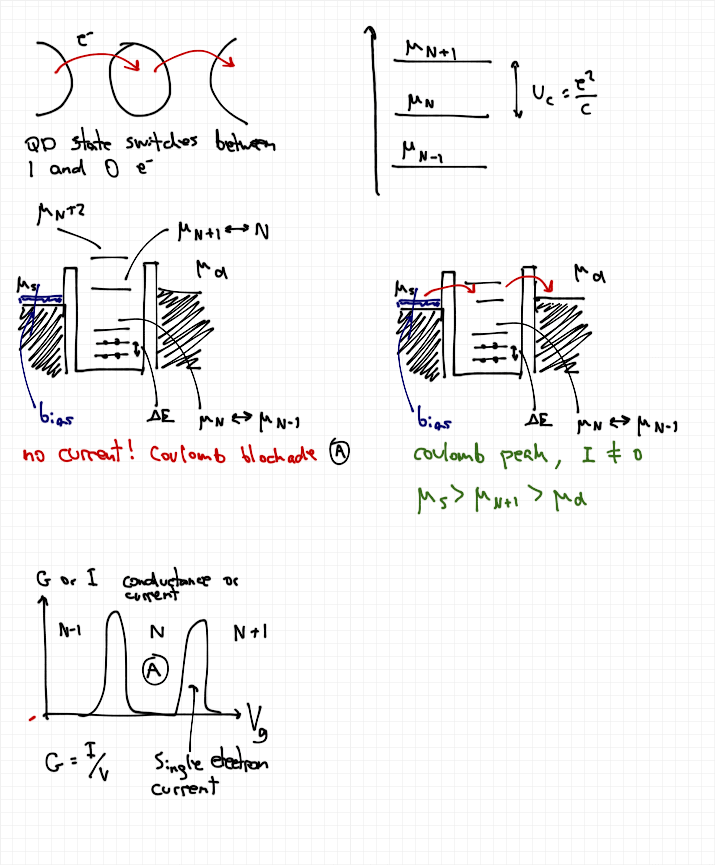 e⁻
QD state switches between
1 and 0 e⁻
μN+1
μN
μN-1
Uc = e²/C
μN+2
μN+1 ↔ N
μs
μd
bias
ΔE
μN ↔ μN-1
no current! Coulomb blockade Ⓐ
μs
μd
bias
ΔE
μN ↔ μN-1
coulomb peak, I ≠ 0
μs > μN+1 > μd
G or I conductance or
current
N-1 N N+1
Ⓐ
Vg
G = I/V
Single electron
current